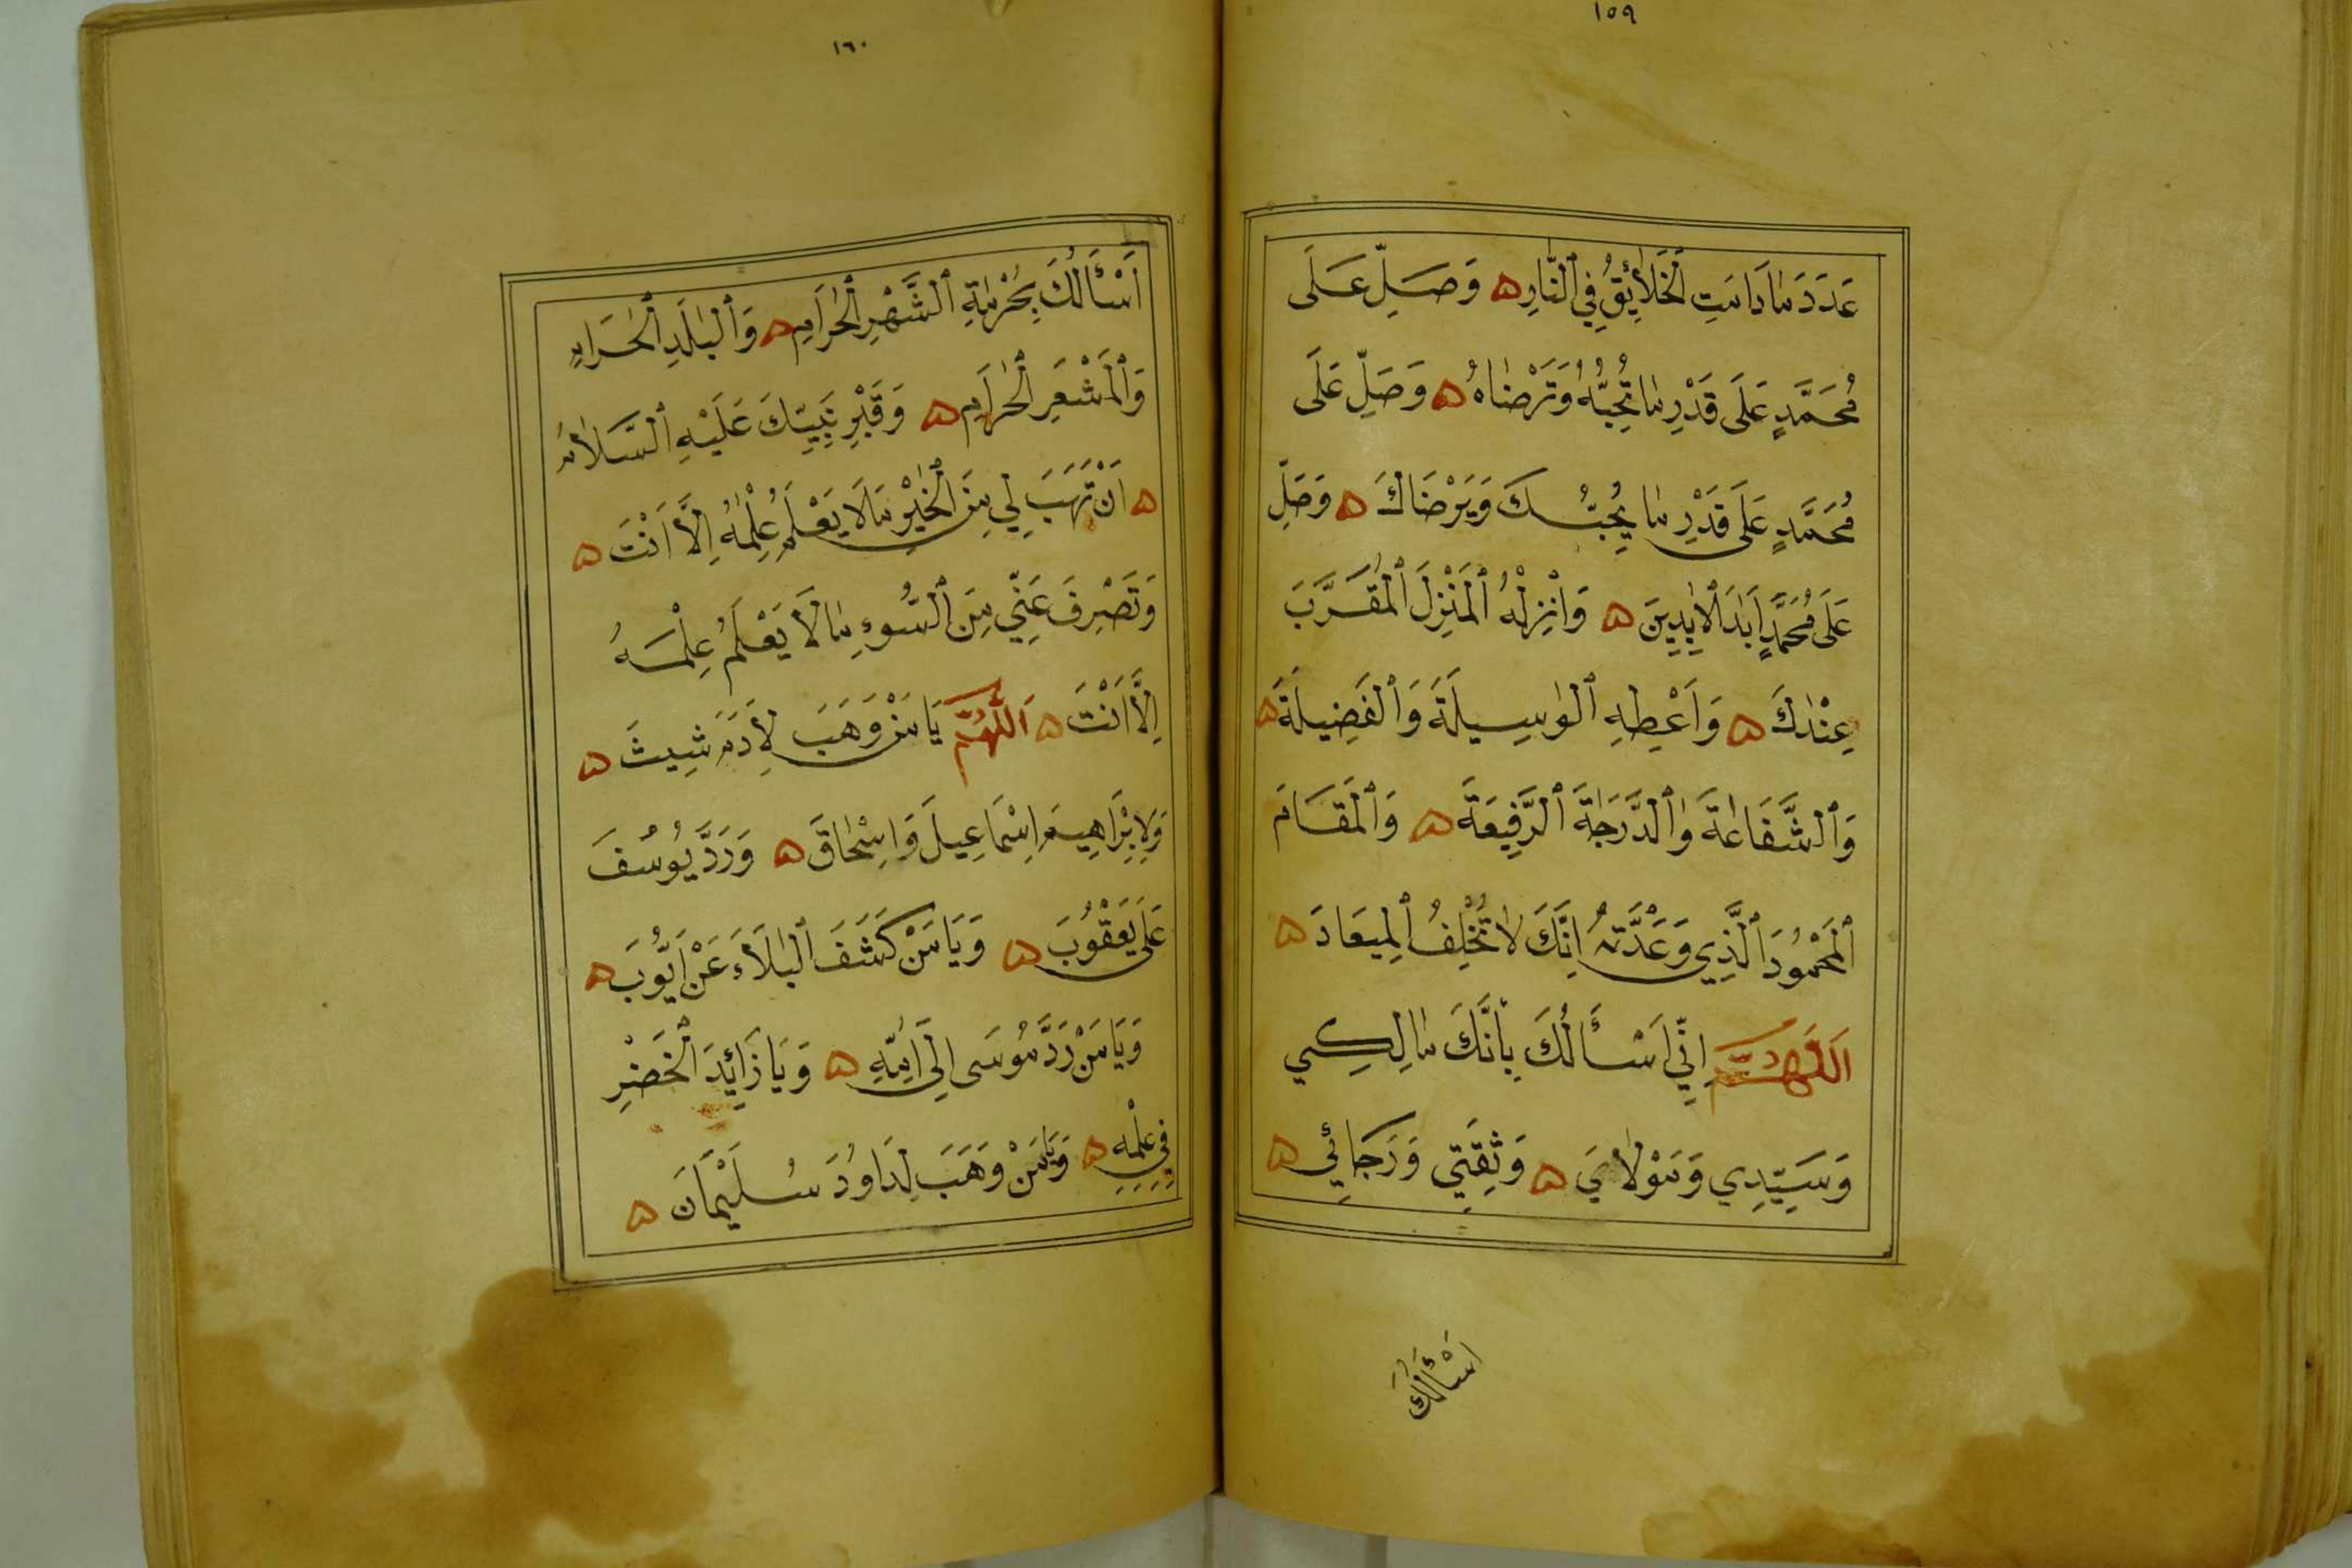 ١٥٩
عَدَدَ مَا دَامَتِ الْخَلَائِقُ فِي النَّارِ وَصَلِّ عَلَى
مُحَمَّدٍ عَلَى قَدْرِ مَا تُحِبُّهُ وَتَرْضَاهُ وَصَلِّ عَلَى
مُحَمَّدٍ عَلَى قَدْرِ مَا يُحِبُّكَ وَيَرْضَاكَ وَصَلِّ
عَلَى مُحَمَّدٍ اَبَدَ الْاٰبِدِينَ وَاَنْزِلْهُ الْمَنْزِلَ الْمُقَرَّبَ
عِنْدَكَ وَاَعْطِهِ الْوَسِيلَةَ وَالْفَضِيلَةَ
وَالشَّفَاعَةَ وَالدَّرَجَةَ الرَّفِيعَةَ وَالْمَقَامَ
الْمَحْمُودَ الَّذِي وَعَدْتَهُ اِنَّكَ لَا تُخْلِفُ الْمِيعَادَ
اَللّٰهُمَّ اِنِّي اَسْأَلُكَ بِاَنَّكَ مَالِكِي
وَسَيِّدِي وَمَوْلَايَ وَثِقَتِي وَرَجَائِي
اَسْأَلُكَ
١٦٠
اَسْأَلُكَ بِحُرْمَةِ الشَّهْرِ الْحَرَامِ وَالْبَلَدِ الْحَرَامِ
وَالْمَشْعَرِ الْحَرَامِ وَقَبْرِ نَبِيِّكَ عَلَيْهِ السَّلَامُ
اَنْ تَهَبَ لِي مِنَ الْخَيْرِ مَا لَا يَعْلَمُ عِلْمَهُ اِلَّا اَنْتَ
وَتَصْرِفَ عَنِّي مِنَ السُّوءِ مَا لَا يَعْلَمُ عِلْمَهُ
اِلَّا اَنْتَ اَللّٰهُمَّ يَا مَنْ وَهَبَ لِاٰدَمَ شِيثَ
وَلِاِبْرَاهِيمَ اِسْمَاعِيلَ وَاِسْحَاقَ وَرَدَّ يُوسُفَ
عَلَى يَعْقُوبَ وَيَا مَنْ كَشَفَ الْبَلَاءَ عَنْ اَيُّوبَ
وَيَا مَنْ رَدَّ مُوسَى اِلَى اُمِّهِ وَيَا زَائِدَ الْخَضِرِ
فِي عِلْمِهِ وَيَا مَنْ وَهَبَ لِدَاوُدَ سُلَيْمَانَ